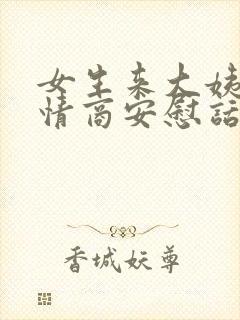 女生来大姨
情商安慰话
香城妖尊